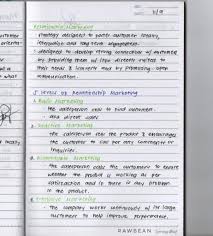 Relationship Marketing
- strategy designed to foster customer loyalty,
interaction and long term engagement.
- designed to develop strong connection w/ customer
by providing them w/ info directly suited to
their needs & interests and by promoting open
communication.
5 Levels of Relationship Marketing
1. Basic Marketing
- the salesperson sells to final customer.
- aka direct sales
2. Reactive Marketing
- the salesperson sells the product & encourages
the customer to call for any comments or
inquiries.
3. Accountable Marketing
- the salesperson calls the customer to ensure
whether the product is working as per
satisfaction and is there is any problem
in the product.
- the company works continuously w/ its large
customers to help improve performance.
RAWBEAN